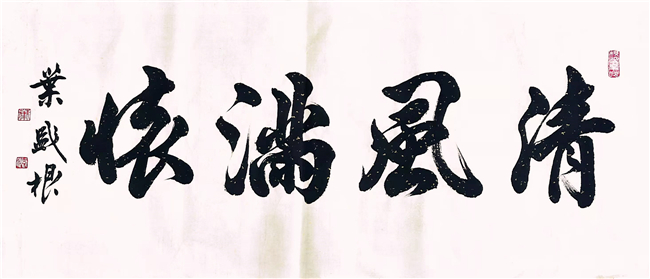 清風滿懷
葉盛根